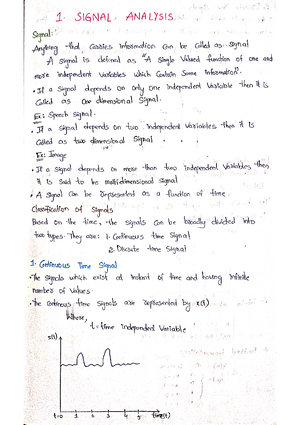 1. SIGNAL ANALYSIS
Signal:
Anything that carries information can be called as signal
A signal is defined as "A single valued function of one and
more independent variables which contain some information".
• If a signal depends on only one independent variable then it is
called as one dimensional signal.
Ex: Speech signal.
• If a signal depends on two independent variables then it is
called as two dimensional signal
Ex: Image
• If a signal depends on more than two independent variables then
it is said to be multidimensional signal
• A signal can be represented as a function of time.
Classification of signals
Based on the time, the signals can be broadly divided into
two types. They are: 1. Continuous time signal
2. Discrete time signal
1. Continuous Time Signal
• The signals which exist at instant of time and having infinite
number of values.
• The continous time signals are represented by x(t)
Where,
t = time independent variable
x(t)
t=0 1 2 3 4 5 time(t)